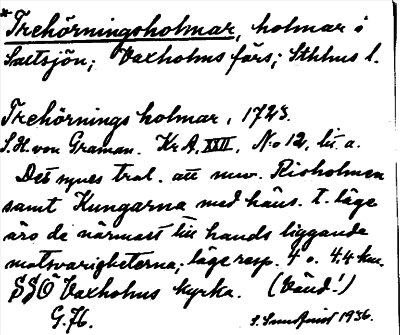 *Trehörningsholmar, holmar i
Saltsjön; Vaxholms förs; Sthlms l.
Trehörnings holmar, 1723.
S. H. von Graman. Kr A, XXII, No 12, lit. a.
Det synes trol. att nuv. Rioholmen
samt Kungarna med häns. t. läge
äro de närmast till hands liggande
motsvarigheterna; läge resp. 4 o. 4.4 km.
SSO Vaxholms kyrka. (Vänd!)
G. H. S. Sundqvist 1936.